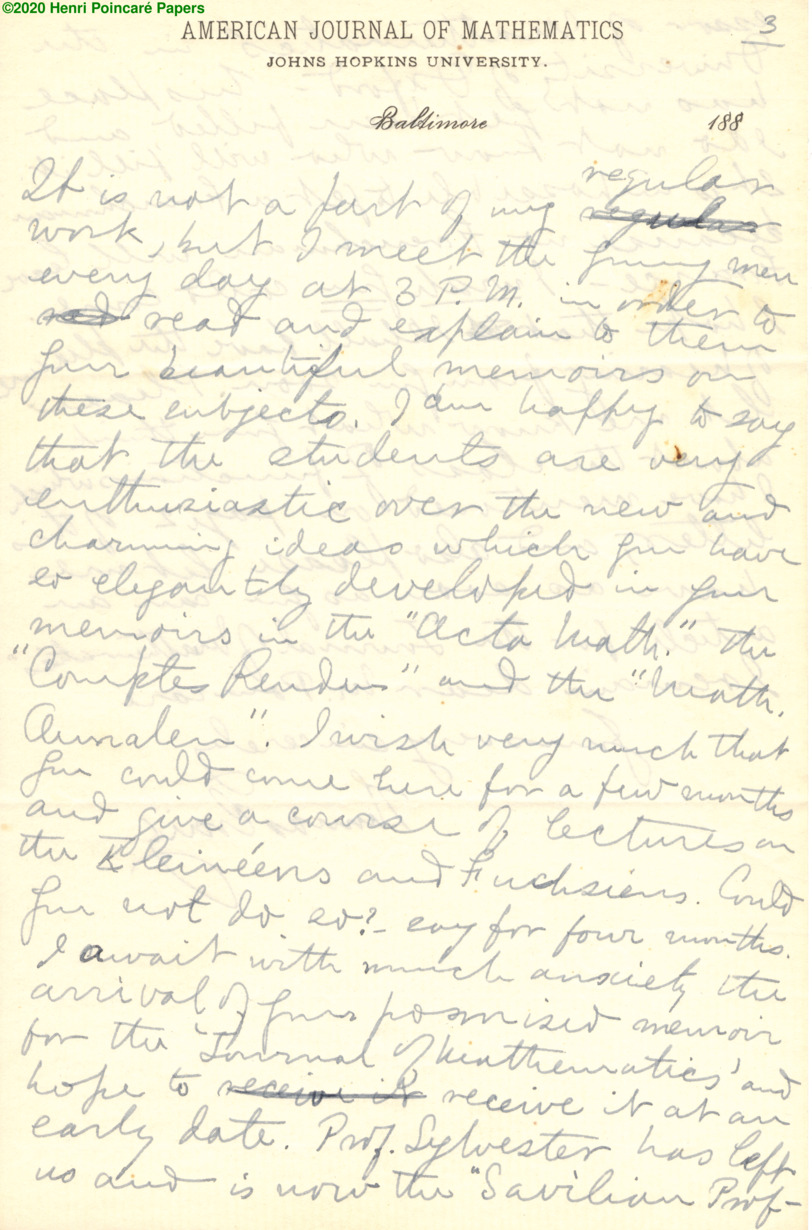 ©2020 Henri Poincaré Papers
3
AMERICAN JOURNAL OF MATHEMATICS
JOHNS HOPKINS UNIVERSITY.
Baltimore 188
It is not a part of my regular regular
work, but I meet the young men
every day at 3 P.M. in order to
red read and explain to them
your beautiful memoirs on
these subjects. I am happy to say
that the students are very
enthusiastic over the new and
charming ideas which you have
so elegantly developed in your
memoirs in the "Acta Math." the
"Comptes Rendus" and the "Math.
Annalen". I wish very much that
you could come here for a few months
and give a course of lectures on
the Kleinéens and Fuchsiens. Could
you not do so? – say for four months.
I await with much anxiety the
arrival of your promised memoir
for the "Journal of Mathematics" and
hope to receive it receive it at an
early date. Prof. Sylvester has left
us and is now the "Savilian Prof-